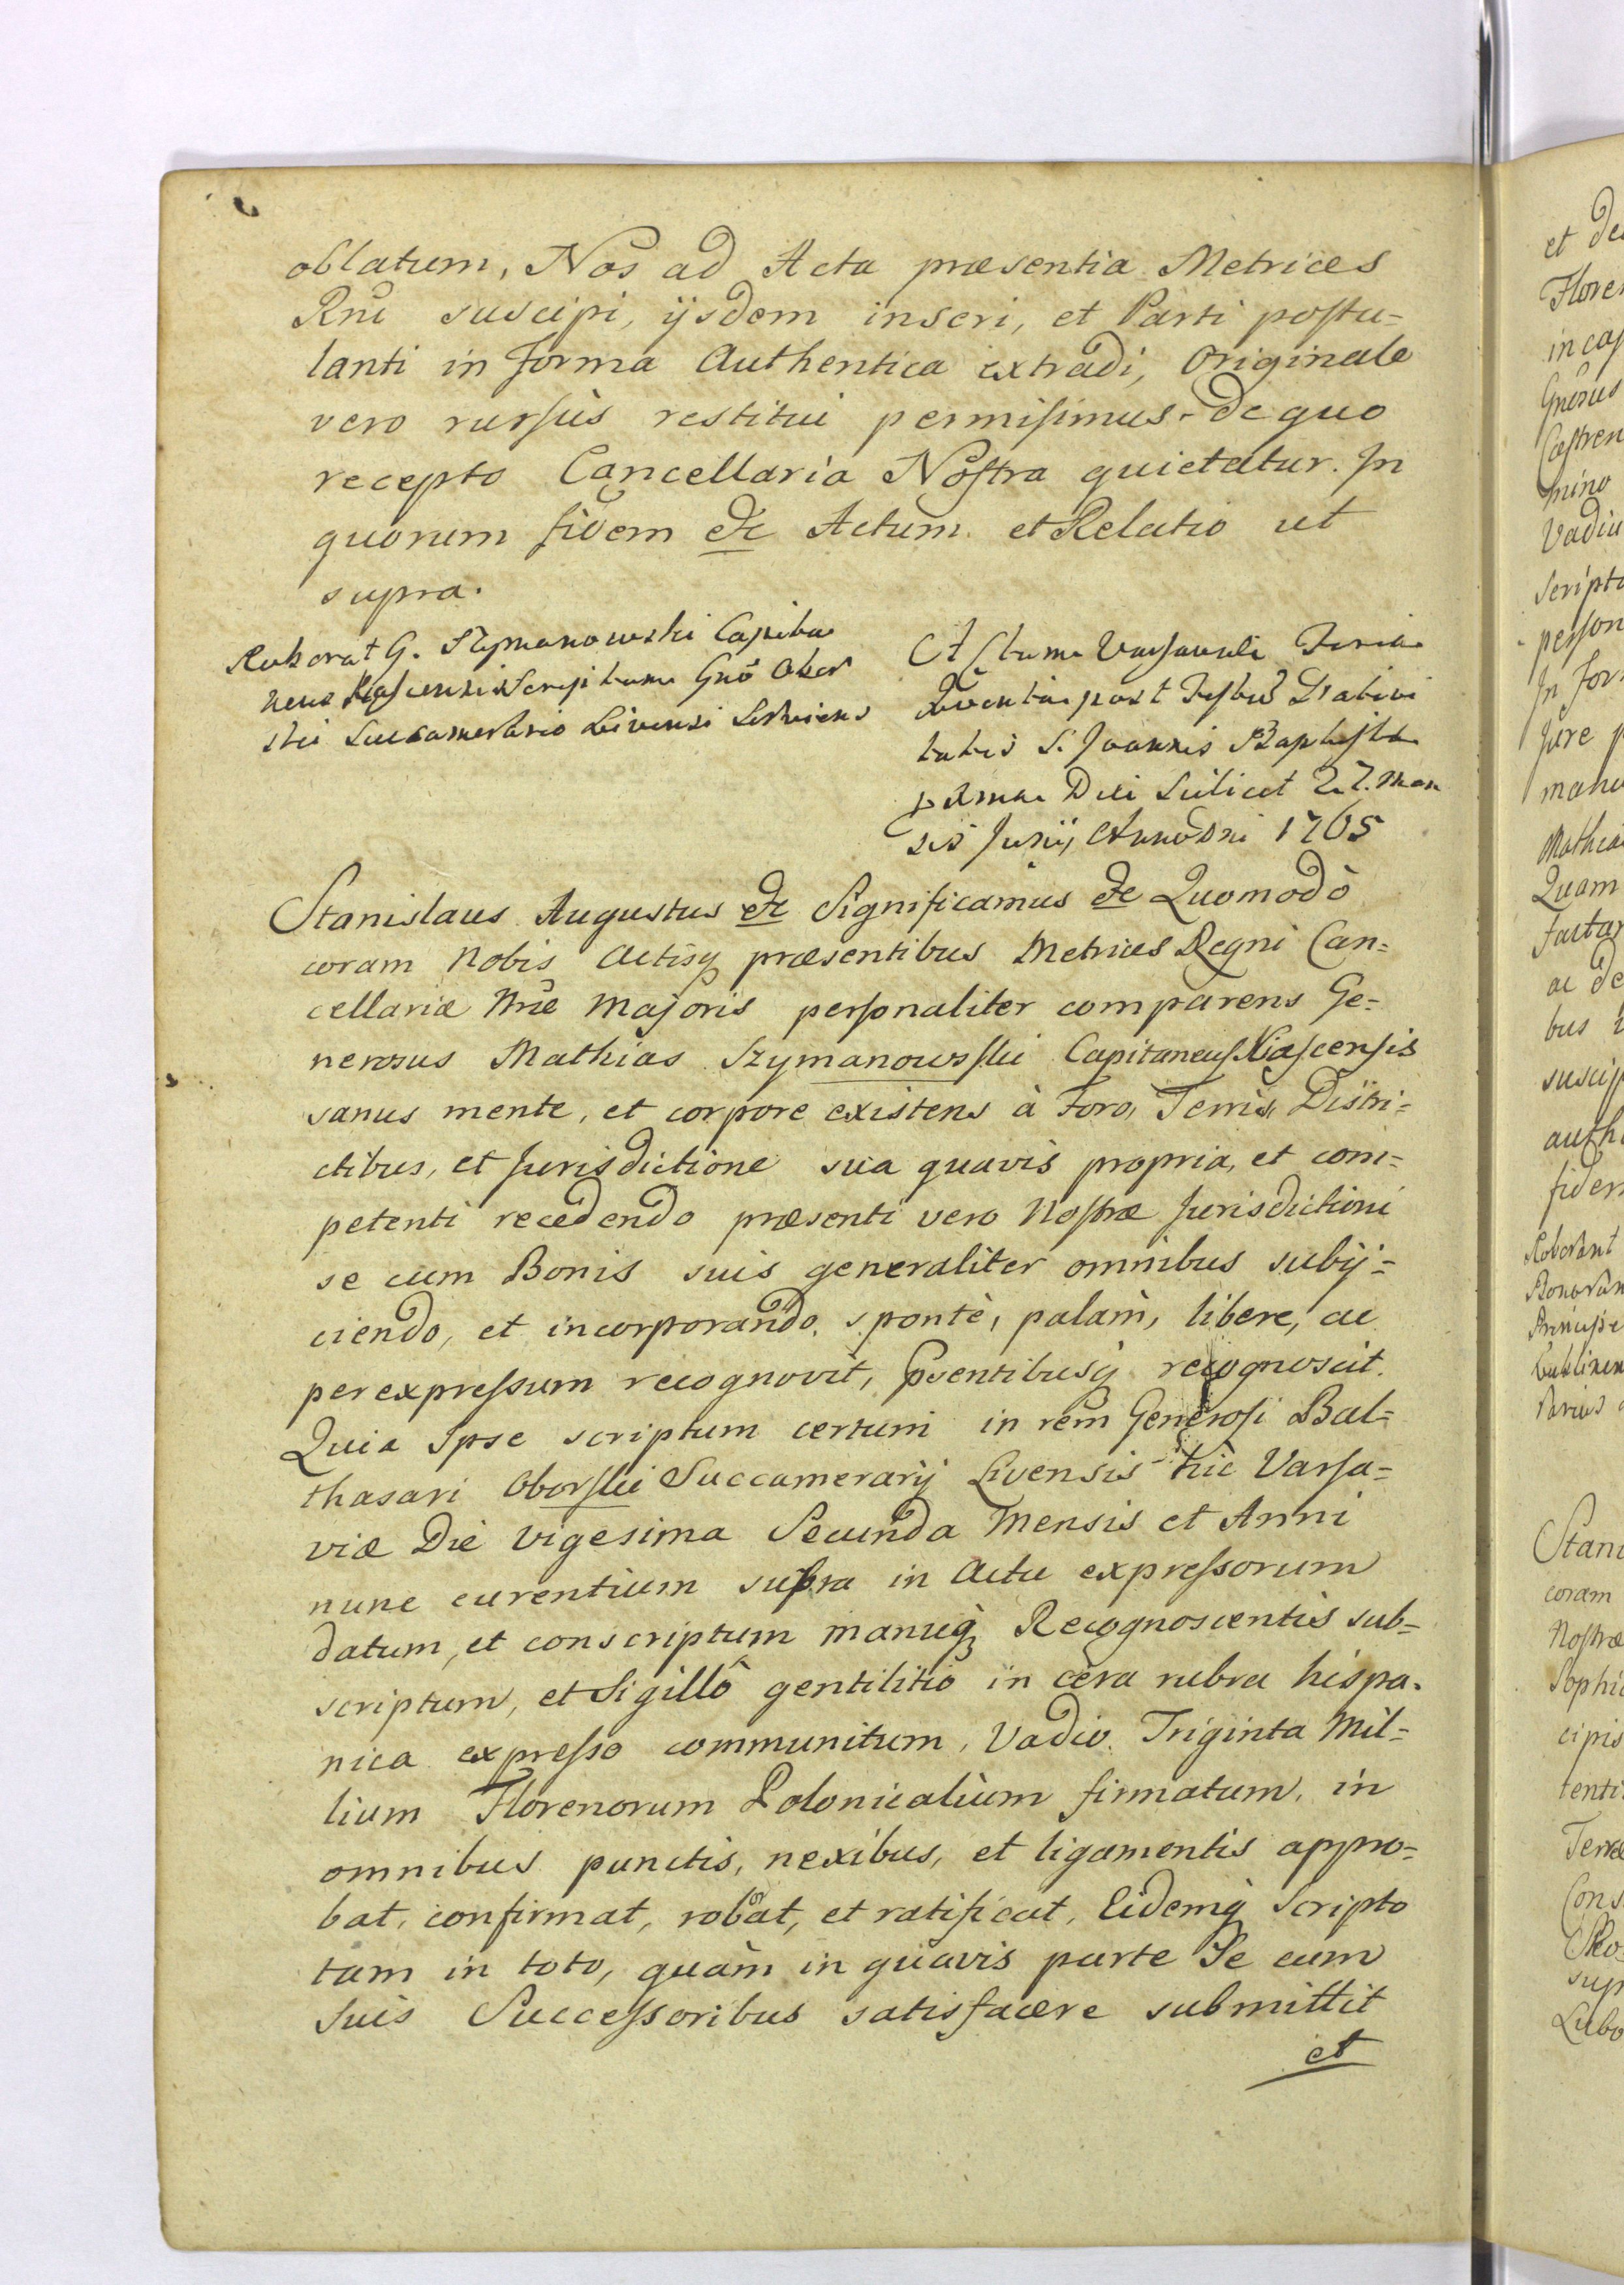 oblatum, Nos ad Acta præsentia Metrices
Rni suscipi, ijsdem inseri, et Parti postu=
lanti in forma Authentica extradi, Originale
vero rursùs restitui permisimus. de quo
recepto Cancellaria Nostra quietatur. In
quorum fidem etc Actum et Relatio ut
supra.
Roborat G. Szymanowski Capita
neus Scriptum Gnõ Obor
ski Succamerario Livensi Serviens
Actum Varsaviæ Feria
Quinta post Festũ Nativi
tatis S. Joannis Baptistæ
pxma Die Scilicet 27. Men
sis Junij Anno Dni 1765
Stanislaus Augustus etc Significamus etc Quomodò
coram Nobis Actisq præsentibus Metrices Regni Can=
cellariæ Nræ Majoris personaliter comparens Ge=
nerosus Mathias Szymanowski Capitaneus
sanus mente, et corpore existens à Foro, Terris, Distri=
ctibus, et Jurisdictione sua quavis propria, et com=
petenti recedendo præsenti vero Nostræ Jurisdictioni
se cum Bonis suis generaliter omnibus subij=
ciendo, et incorporando, spontè, palàm, libere, ac
per expressum recognovit, pñentibusq recognoscit.
Quia Ipse scriptum certum in rem Generosi Bal=
thasari Oborski Succamerarij Livensis hic Varsa=
viæ Die vigesima Secunda Mensis et Anni
nunc curentium supra in Actu expressorum
datum, et conscriptum manuq Recognoscentis sub=
scriptum, et Sigillô gentilitio in cera rubra hispa=
nica expresso communitum, Vadio Triginta Mil=
lium Florenorum Polonicalium firmatum, in
omnibus punctis, nexibus, et ligamentis appro=
bat, confirmat, robõat, et ratificat, Eidemq scripto
tam in toto, quàm in quavis parte Se cum
suis Successoribus satisfacere submittit
et